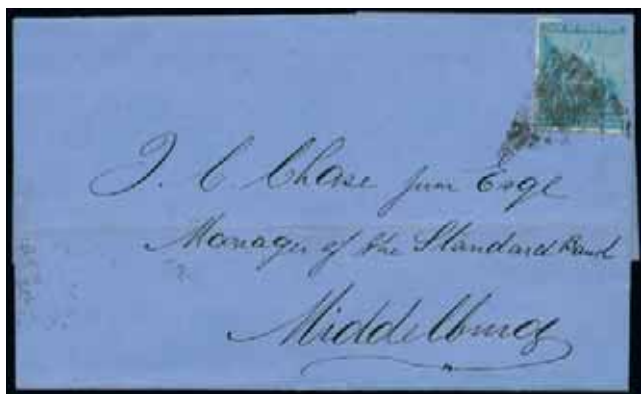 J. C. Chase junr Esqe
Manager of the Standard Bank
Middelburg